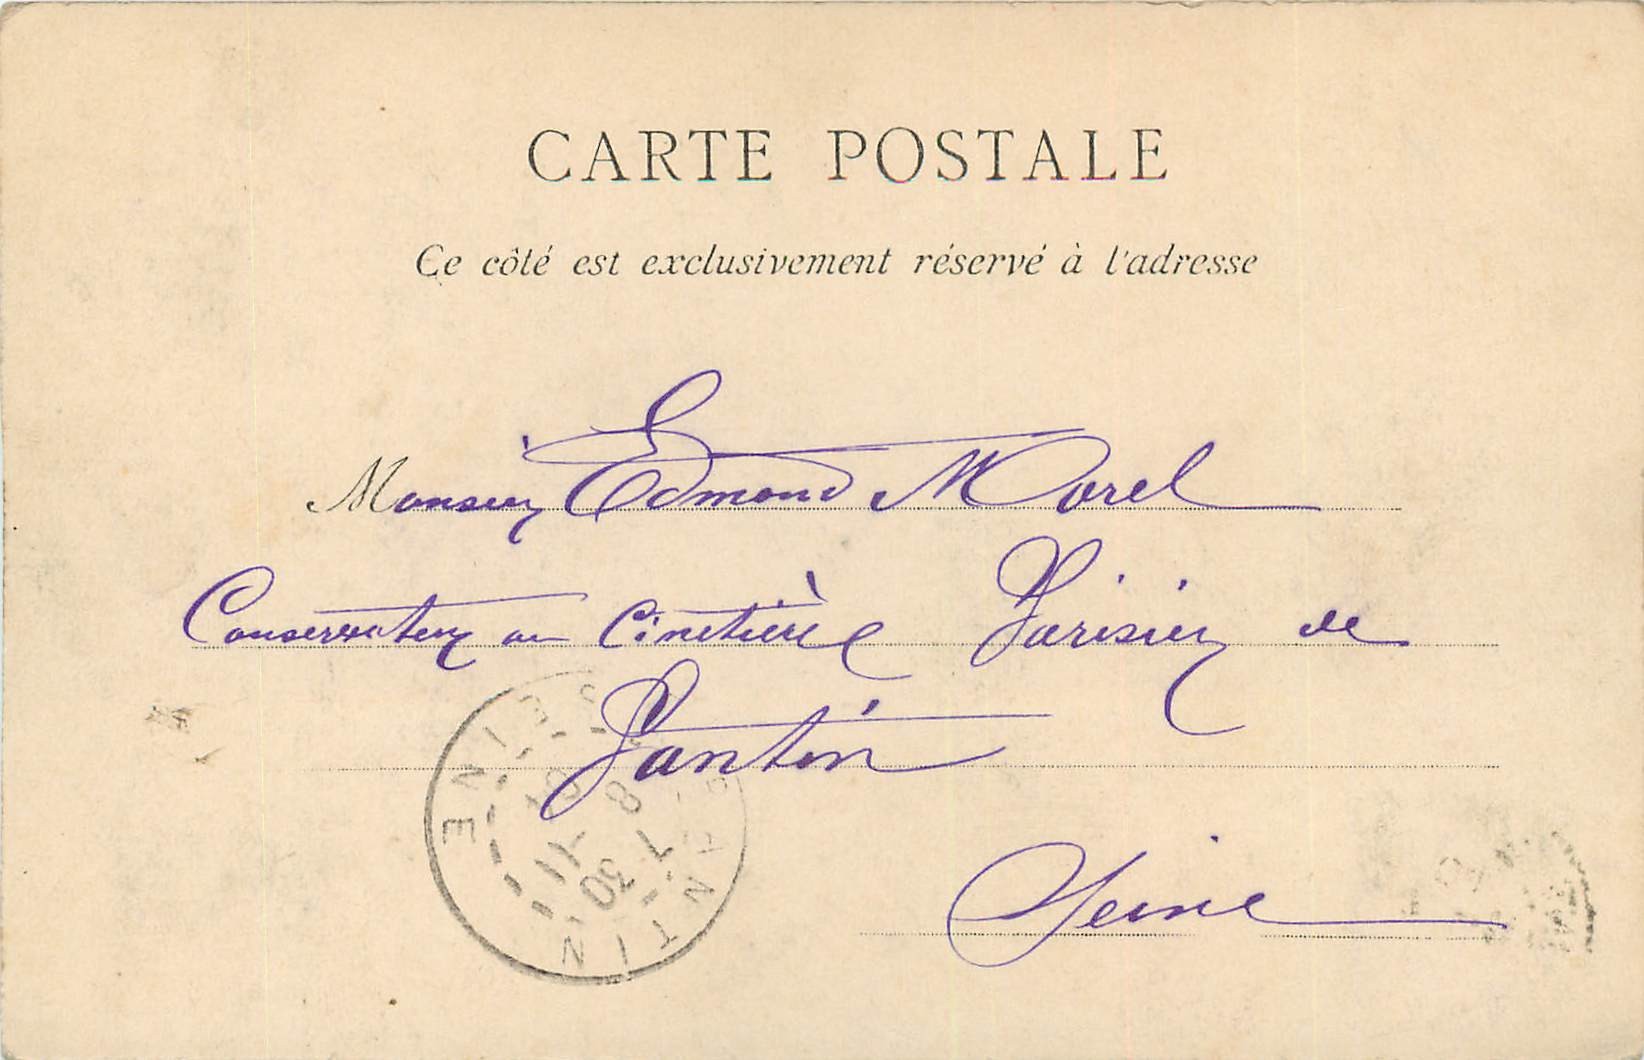 CARTE POSTALE
Ce côté est exclusivement réservé à l'adresse
Monsieur Edmond Morel
Conservateur au Cimetière Parisien de
Pantin
Seine
PANTIN
SEINE
7 30
8 -11